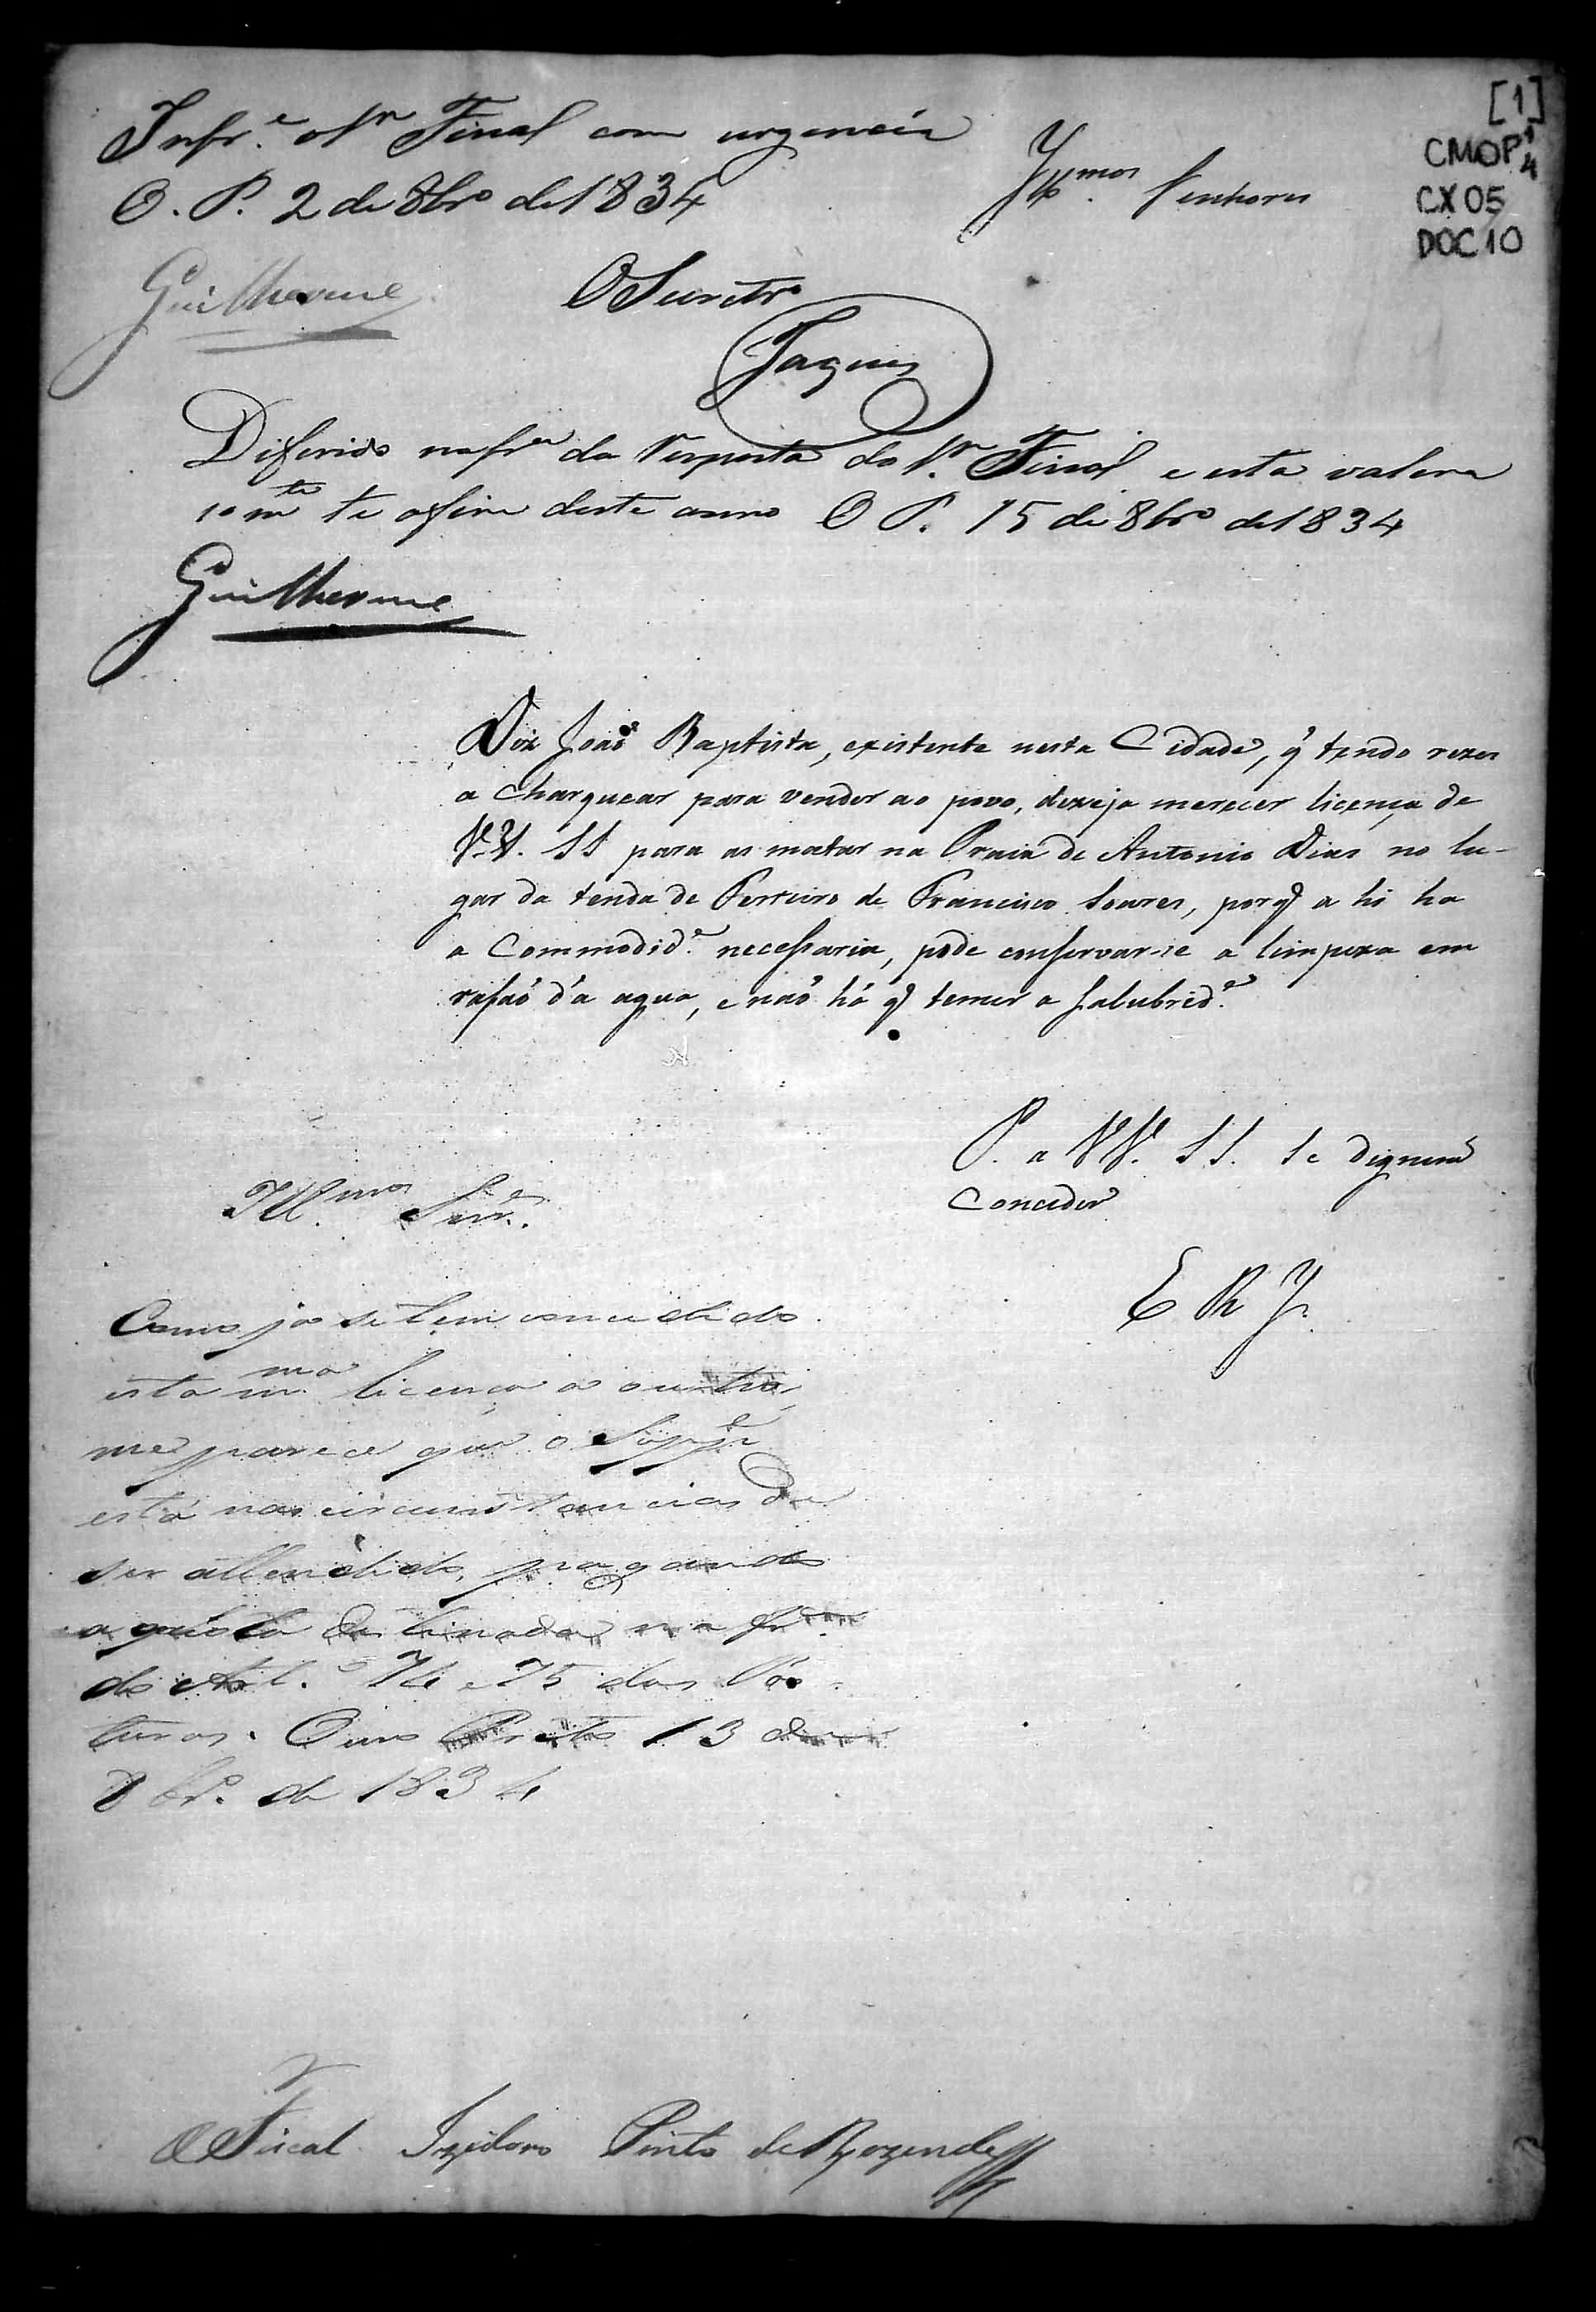 [1]
CMOP 1/4
CX 05
DOC 10
Infr.e o Sr Fiscal com urgencia
O. P. 2 de 8br.o de 1834
Guilherme
O Secretr.o
Jaques
Ill.mos Senhores
Diferido na fr.a da resposta do Sr. Fiscal e esta valera
so m.te te o fim deste anno O P. 15 de 8br.o de 1834
Guilherme
Diz João Baptista, existente nesta Cidade, q̃ tendo rezes
a charquear para vender ao povo, dezeja merecer licença de
V.V. SS para as matar na Praia de Antonio Dias no lu-
gar da tenda de Ferreiro de Francisco Soares, porq̃ a hi ha
a Commodid.e necessaria, pode conservar-se a limpeza em
rasão d'a agua, e não há q̃ temer a salubrid.e
P. a VV. SS. se dignem
Conceder
E R M.
Ill.mos Senr.es
Como ja se tem concedido
esta m.ma licença a outros,
me parece que o Supp.e
está nas circunstancias de
ser attendido, pagando
a quota destinada na fr.a
do Art.o 74 e 75 das Pos-
turas. Ouro Preto 13 de
8br.o de 1834
O Fiscal Izidoro Pinto de Rezende